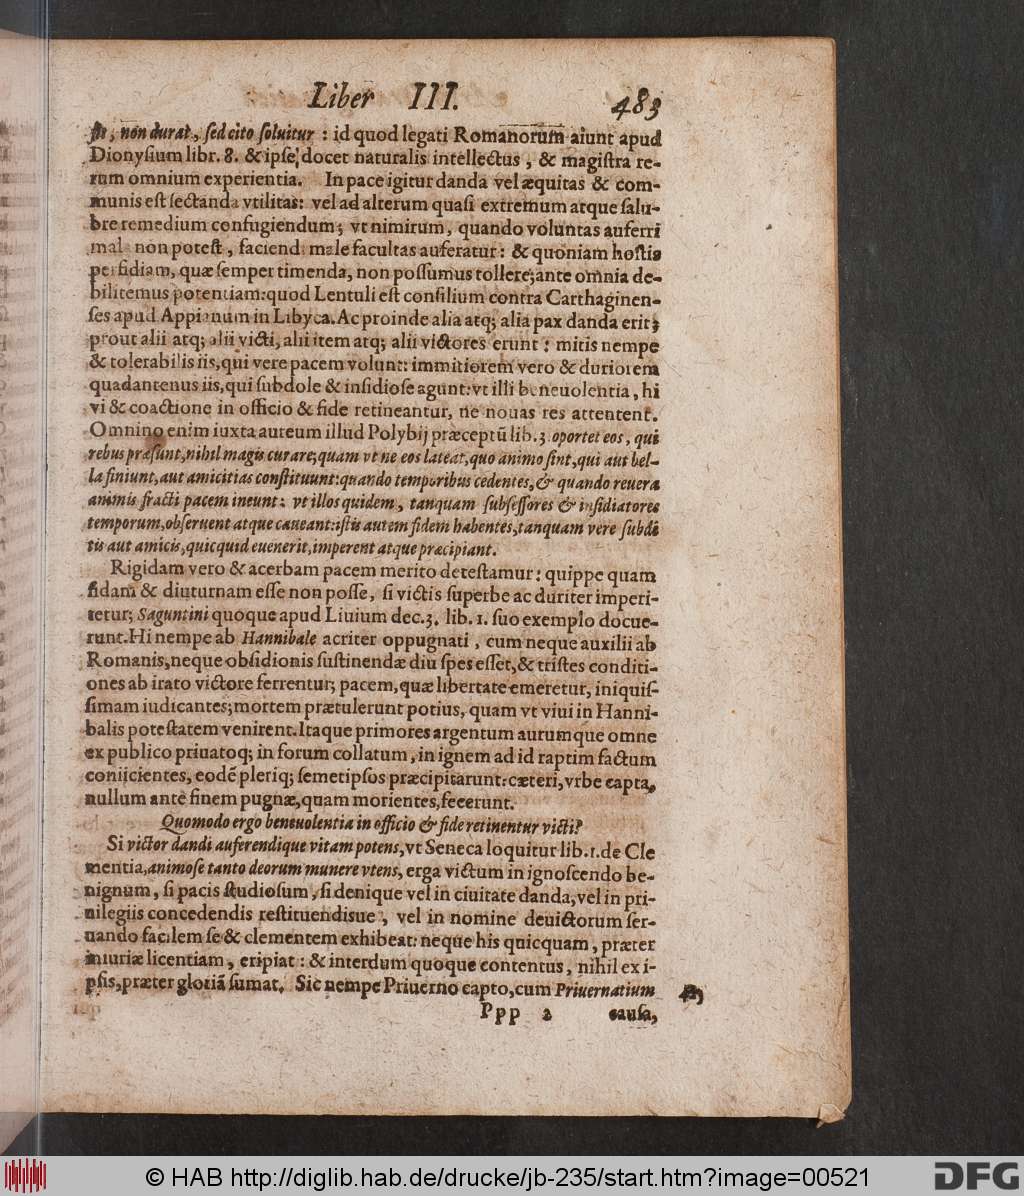 Liber III. 483
fit, non durat, sed cito soluitur : id quod legati Romanorum aiunt apud
Dionysium libr. 8. & ipse docet naturalis intellectus, & magistra re-
rum omnium experientia. In pace igitur danda vel æquitas & com-
munis est sectanda vtilitas: vel ad alterum quasi extremum atque salu-
bre remedium confugiendum; vt nimirum, quando voluntas auferri
mala non potest, faciendi male facultas auferatur: & quoniam hostis
perfidiam, quæ semper timenda, non possumus tollere; ante omnia de-
bilitemus potentiam: quod Lentuli est consilium contra Carthaginen-
ses apud Appianum in Libyca. Ac proinde alia atq; alia pax danda erit;
prout alii atq; alii victi, alii item atq; alii victores erunt : mitis nempe
& tolerabilis iis, qui vere pacem volunt: immitiorem vero & duriorem
quadantenus iis, qui subdole & insidiose agunt: vt illi beneuolentia, hi
vi & coactione in officio & fide retineantur, ne nouas res attentent.
Omnino enim iuxta aureum illud Polybij præceptū lib. 3. oportet eos, qui
rebus præsunt, nihil magis curare; quam vt ne eos lateat, quo animo sint, qui aut bel-
la finiunt, aut amicitias constituunt: quando temporibus cedentes, & quando reuera
animis fracti pacem ineunt : vt illos quidem, tanquam subsessores & insidiatores
temporum, obseruent atque caueant: istis autem fidem habentes, tanquam vere subdi
tis aut amicis, quicquid euenerit, imperent atque præcipiant.
Rigidam vero & acerbam pacem merito detestamur: quippe quam
fidam & diuturnam esse non posse, si victis superbe ac duriter imperi-
tetur; Saguntini quoque apud Liuium dec. 3. lib. 1. suo exemplo docue-
runt. Hi nempe ab Hannibale acriter oppugnati, cum neque auxilii ab
Romanis, neque obsidionis sustinendæ diu spes esset, & tristes conditi-
ones ab irato victore ferrentur; pacem, quæ libertate emeretur, iniquis-
simam iudicantes; mortem prætulerunt potius, quam vt viui in Hanni-
balis potestatem venirent. Itaque primores argentum aurumque omne
ex publico priuatoq; in forum collatum, in ignem ad id raptim factum
coniicientes, eodē pleriq; semetipsos præcipitarunt: cæteri, vrbe capta,
nullum ante finem pugnæ, quam morientes, fecerunt.
Quomodo ergo beneuolentia in officio & fide retinentur victi?
Si victor dandi auferendique vitam potens, vt Seneca loquitur lib. 1. de Cle
mentia, animose tanto deorum munere vtens, erga victum in ignoscendo be-
nignum, si pacis studiosum, si denique vel in ciuitate danda, vel in pri-
uilegiis concedendis restituendisue, vel in nomine deuictorum ser-
uando facilem se & clementem exhibeat: neque his quicquam, præter
iniuriæ licentiam, eripiat : & interdum quoque contentus, nihil ex i-
psis, præter gloriā sumat. Sic nempe Priuerno capto, cum Priuernatium
Ppp 2 causa,
© HAB http://diglib.hab.de/drucke/jb-235/start.htm?image=00521
DFG